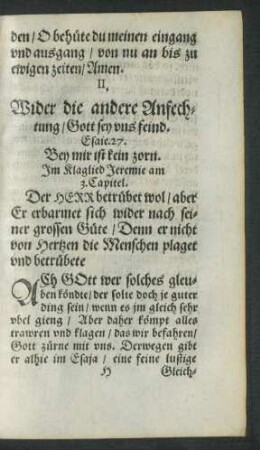 den / O behüte du meinen eingang
vnd ausgang / von nu an bis zu
ewigen zeiten / Amen.
II,
Wider die andere Anfech-
tung / Gott sey vns feind.
Esaie.27.
Bey mir ist kein zorn.
Im Klaglied Jeremie am
3.Capitel.
Der HERR betrübet wol / aber
Er erbarmet sich wider nach sei-
ner grossen Güte / Denn er nicht
von Hertzen die Menschen plaget
vnd betrübete
ACh GOtt wer solches gleu-
ben köndte / der solte doch je guter
ding sein / wenn es jm gleich sehr
vbel gieng / Aber daher kömpt alles
trawren vnd klagen / das wir befahren /
Gott zürne mit vns. Derwegen gibt
er alhie im Esaja / eine feine lustige
H Gleich-